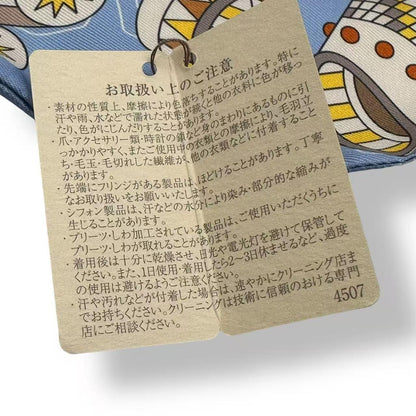 お取扱い上のご注意
・素材の性質上、摩擦により色落ちすることがあります。特に
汗や雨、水などで濡れた状態が続くと他の衣料に色が移っ
たり、色がにじんだりすることがあります。
・爪・アクセサリー類・時計の
など身のまわりにあるものに引
っかかりやすく、またご使用中の衣類との摩擦により、毛羽立
ち・毛玉・毛切れした繊維が、他の衣類などに付着すること
があります。
・先端にフリンジがある製品は、ほどけることがあります。丁寧
なお取り扱いをお願いいたします。
・シフォン製品は、汗などの水分により染み・部分的な縮みが
生じることがあります。
・プリーツ・しわ加工されている製品は、ご使用いただくうちに
プリーツ・しわが取れることがあります。
・着用後は十分に乾燥させ、日光や電光灯を避けて保管して
ください。また、1日使用・着用したら2~3日休ませるなど、過度
の使用は避けるようご注意ください。
・汗や汚れなどが付着した場合は、速やかにクリーニング店ま
でお持ちください。クリーニングは技術に信頼のおける専門
店にご相談ください。
4507